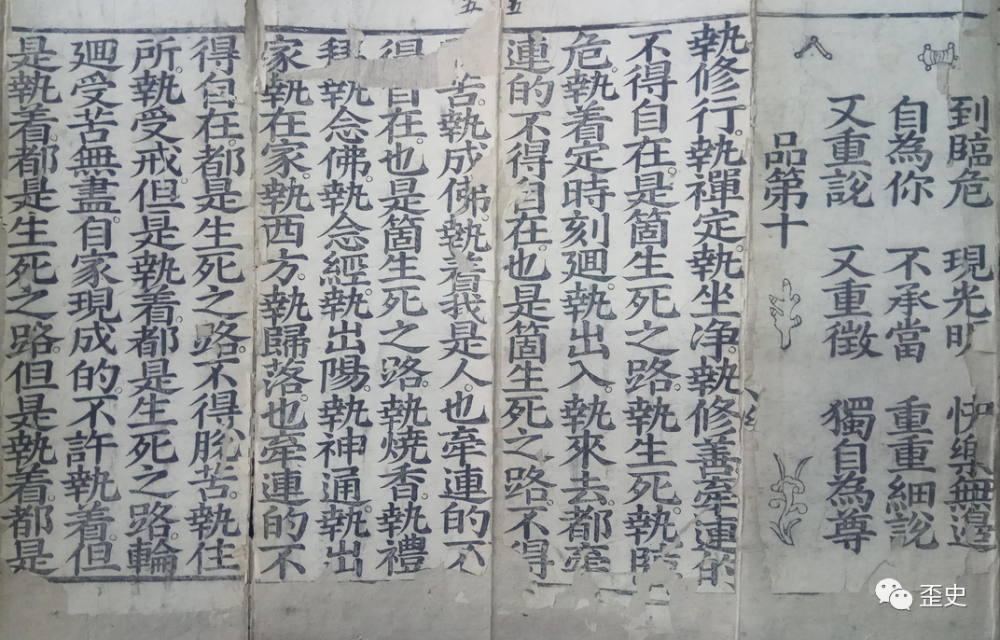 到臨危 現光明 快樂無邊
自為你 不承當 重重細說
又重說 又重徵 獨自為尊
品第十
執修行。執禪定。執坐净。執修善。牽連的
不得自在。是箇生死之路。執生死。執時
危。執着定時刻廻。執出入。執來去。都牽
連的不得自在。也是箇生死之路。不得
苦。執成佛。執着我是人。也牽連的不
得自在。也是箇生死之路。執燒香。執禮
拜。執念佛。執念經。執出陽。執神通。執出
家。執在家。執西方。執歸落。也牽連的不
得自在。都是生死之路。不得脫苦。執住
所。執受戒。但是執着。都是生死之路。輪
廻受苦無盡。自家現成的。不許執着。但
是執着。都是生死之路。但是執着。都是
五
五
歪史